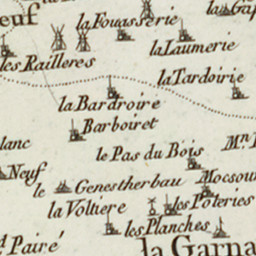 euf
la Fouasserie
la Gas
les Railleres
la Laumerie
la Tardoirie
la Bardroire
Barboiret
lanc
le Pas du Bois
Neuf
le Genestherbau
Mocsou
la Voltiere
les Poteries
les Planches
Pairé
la Garna